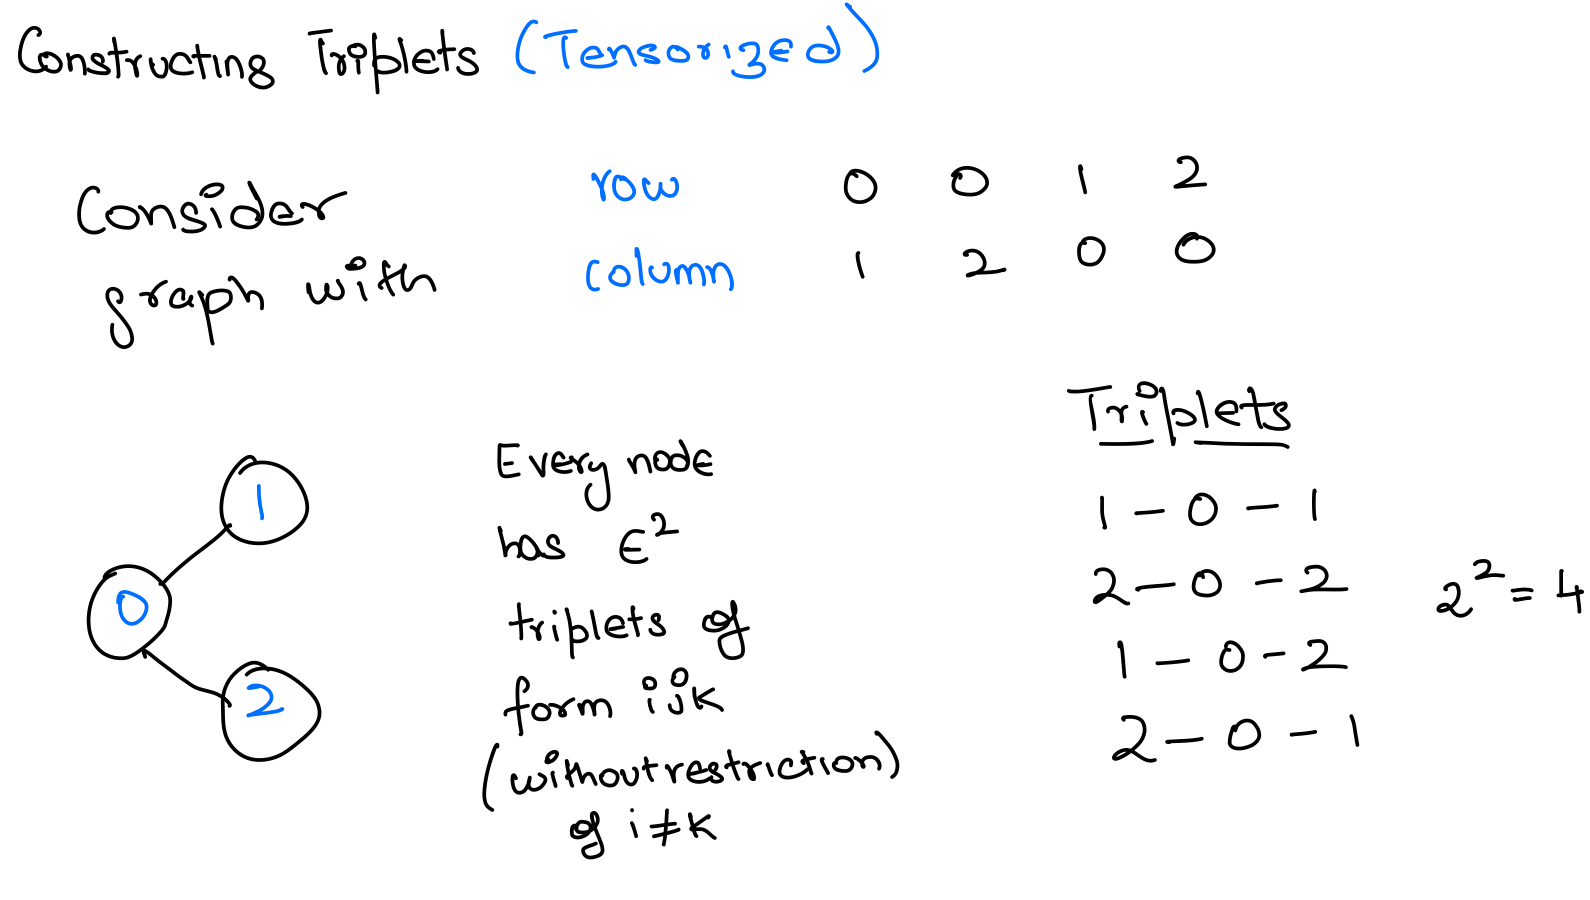 Constructing Triplets (Tensorized)
Consider
graph with
row 0 0 1 2
column 1 2 0 0
1
0
2
Every node
has E²
triplets of
form ijk
(without restriction)
of i ≠ k
Triplets
1 - 0 - 1
2 - 0 - 2
1 - 0 - 2
2 - 0 - 1
2² = 4